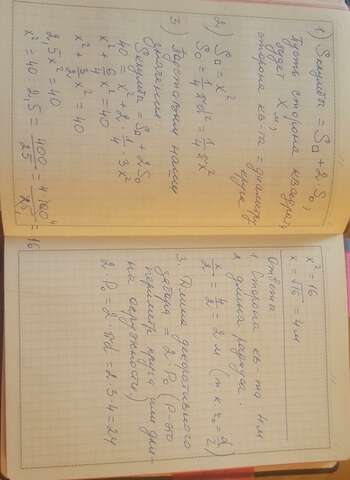 1) Sклумбы = S□ + 2S○,
Пусть сторона квадрата,
будет x м,
сторона кв-та = диаметру
круга
2) S□ = x²
S○ = 1/4 πd² = 1/4 πx²
3) Подставим наши
значения
Sклумбы = S□ + 2S○
40 = x² + 2 · 1/4 · 3x²
x² + 6/4 x² = 40
x² + 3/2 x² = 40
2,5x² = 40
x² = 40 : 2,5 = 400/25 = 16
x² = 16
x = √16 = 4 м
Ответы
1. Сторона кв-та 4м
2. длина радиуса:
x/2 = 4/2 = 2 м (т к r○ = d/2)
3. Длина декоративного
забора = 2 · P○ (P-это
периметр круга или дли-
на окружности)
2 · P○ = 2 · πd = 2 · 3 · 4 = 24